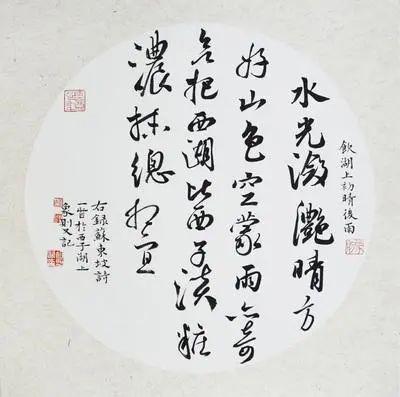 飲湖上初晴後雨
水光瀲灧晴方
好山色空蒙雨亦奇
欲把西湖比西子淡粧
濃抹總相宜
右録蘇東坡詩
一首於西子湖上
記